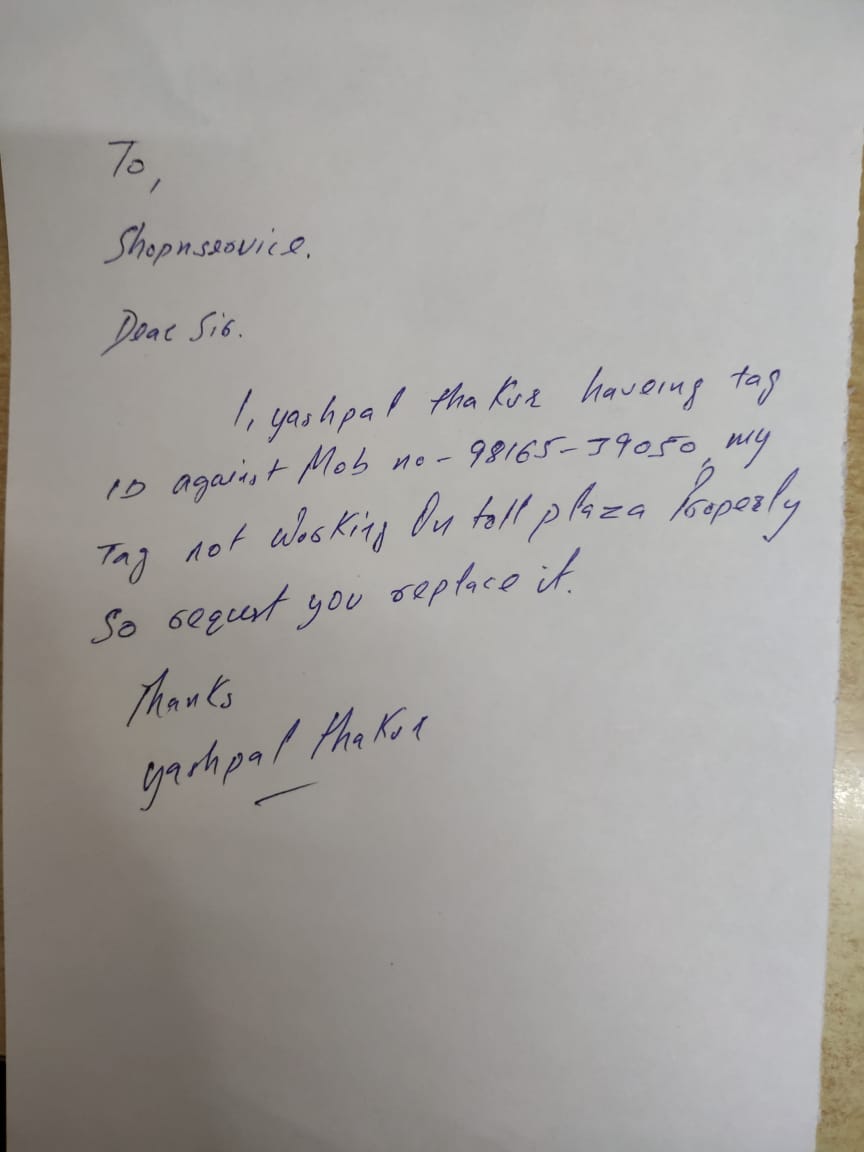 To,
Shopnservice.
Dear Sir.
I, yashpal thakur haveing tag
ID against Mob no - 98165-39050, my
Tag not working On toll plaza Properly
So requst you replace it.
Thanks
yashpal thakur